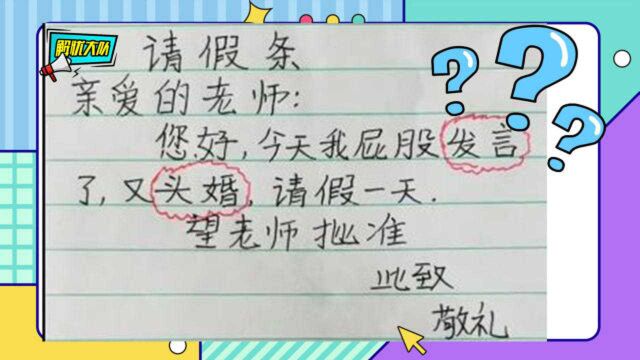 解忧大队
请假条
亲爱的老师:
您好,今天我屁股发言
了,又头婚,请假一天.
望老师批准
此致
敬礼